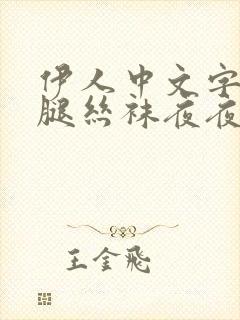 伊人中文字
腿丝袜夜夜
王金飛